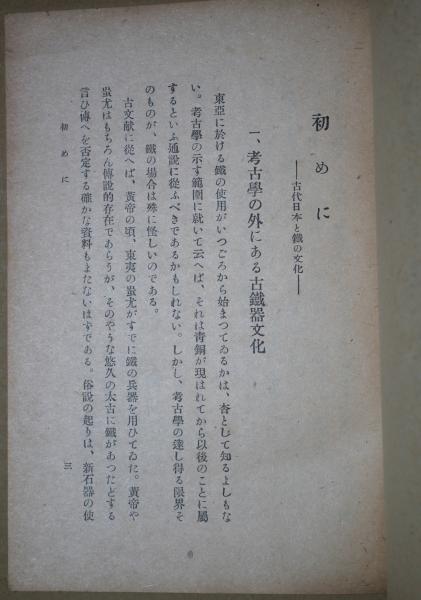 初めに
――古代日本と鐵の文化――
一、考古學の外にある古鐵器文化
東亞に於ける鐵の使用がいつごろから始まつてゐるかは、杳として知るよしもな
い。考古學の示す範圍に就いて云へば、それは青銅が現はれてから以後のことに屬
するといふ通説に從ふべきであるかもしれない。しかし、考古學の達し得る限界そ
のものが、鐵の場合は殊に怪しいのである。
古文献に從へば、黄帝の頃、東夷の蚩尤がすでに鐵の兵器を用ひてゐた。黄帝や
蚩尤はもちろん傳説的存在であらうが、そのやうな悠久の太古に鐵があつたとする
言ひ傳へを否定する確かな資料もまたないはずである。俗説の起りは、新石器の使
初めに
三